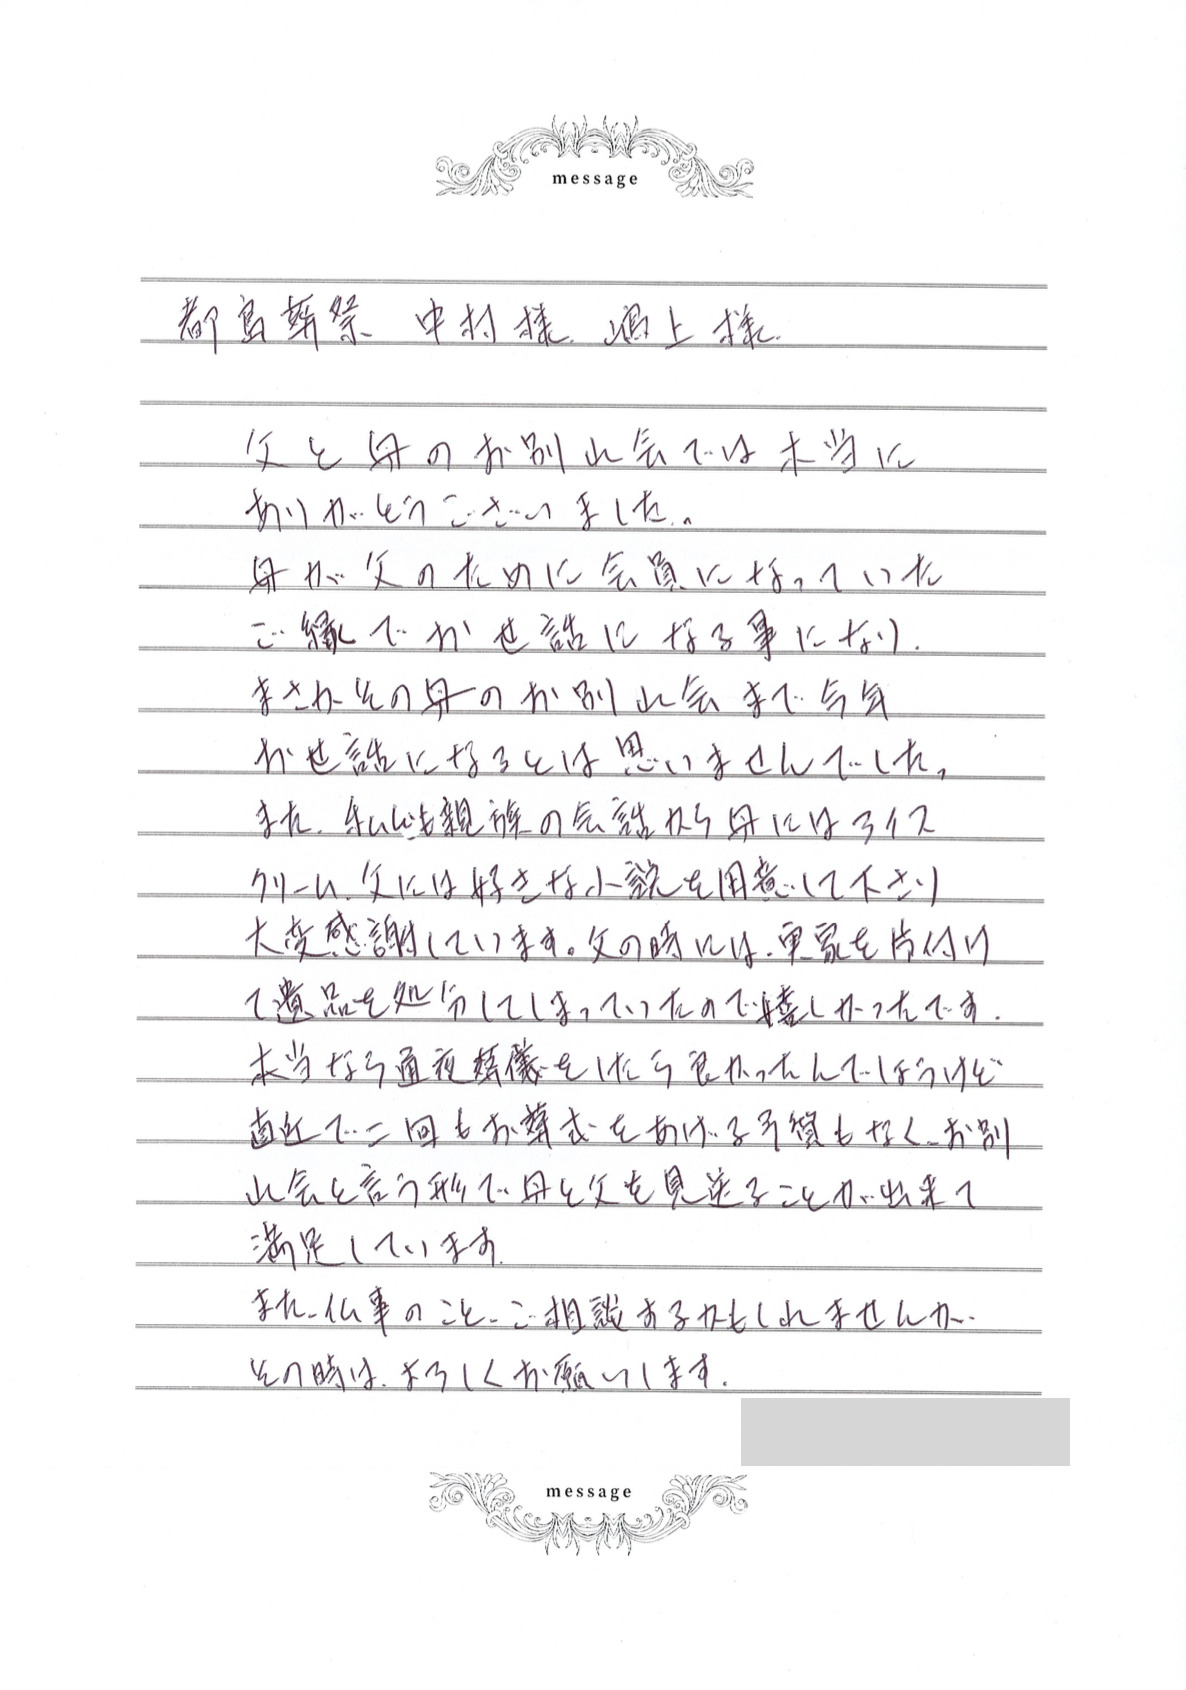 message
都島葬祭 中村様. 上様.
父と母のお別れ会では本当に
ありがとうございました。
母が父のために会員になっていた
ご縁でお世話になる事になり.
まさかその母のお別れ会まで今年
お世話になるとは思いませんでした。
また、私ども親族の会話から母にはアイス
クリーム、父には好きな小説を用意して下さり
大変感謝しています。父の時には、実家を片付け
て遺品を処分してしまっていたので嬉しかったです.
本当なら通夜葬儀をしたら良かったんでしょうけど
直近で二回もお葬式をあげる予算もなく、お別
れ会と言う形で母と父を見送ることが出来て
満足しています.
また、仏事のこと、ご相談するかもしれませんが、
その時は、よろしくお願いします.
message